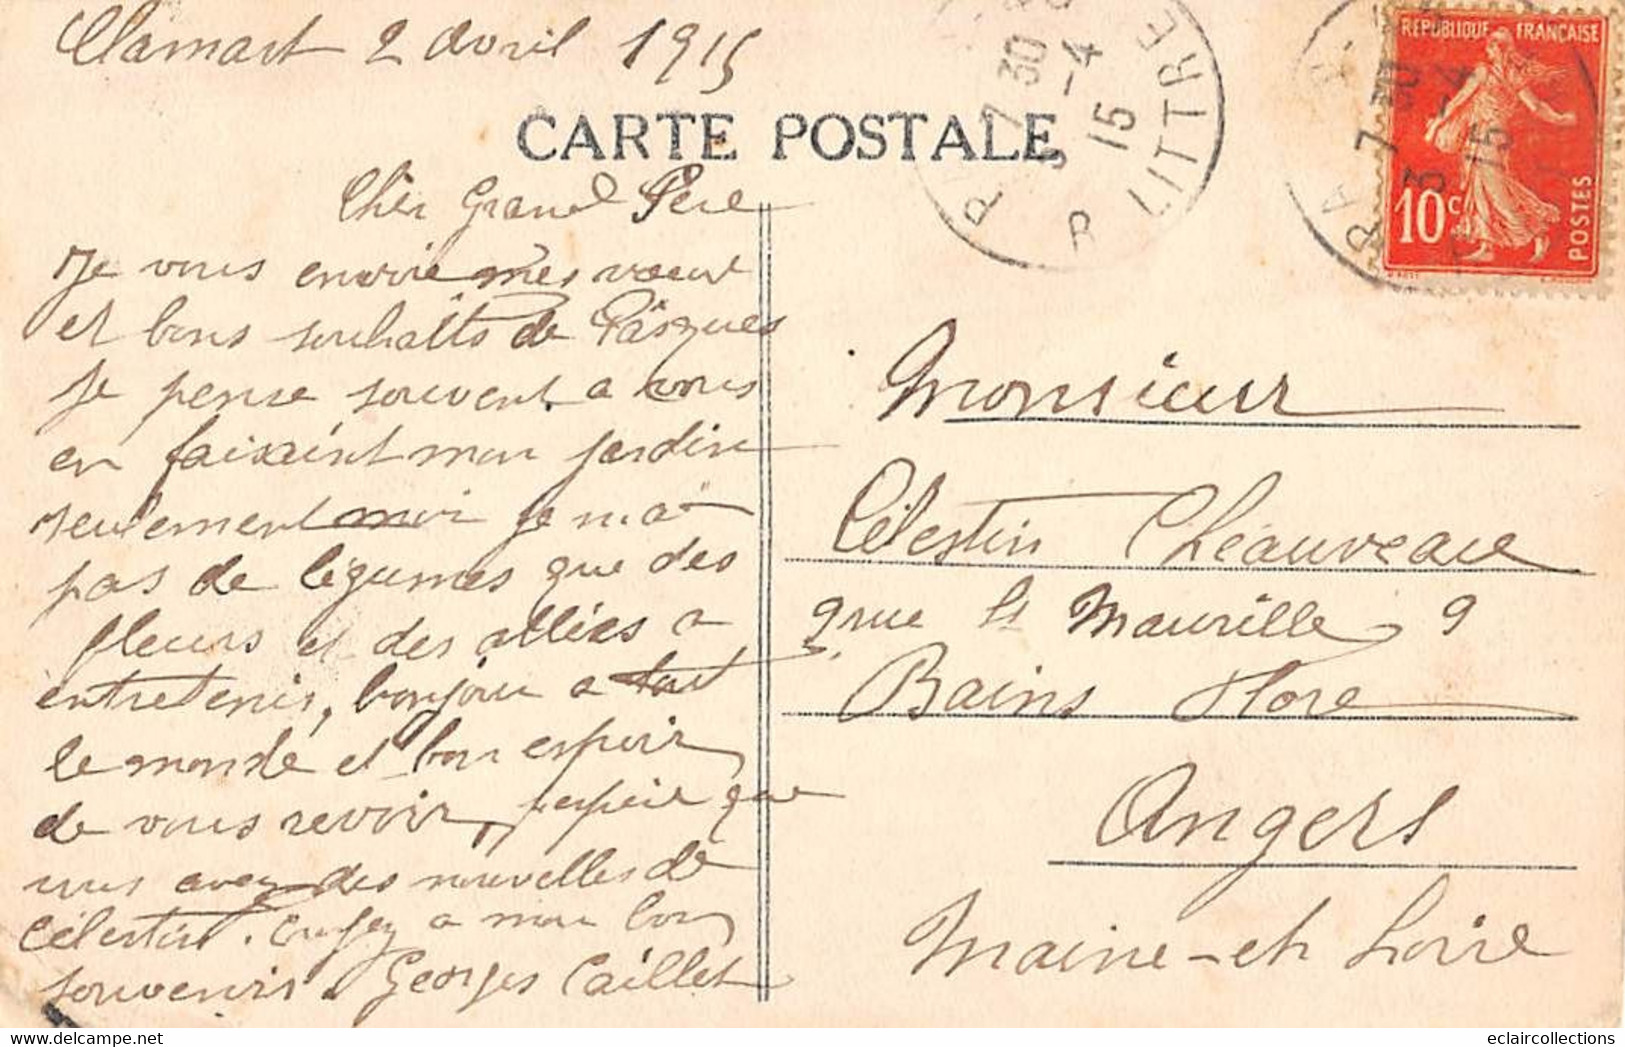 Clamart 2 Avril 1915
CARTE POSTALE
Cher Grand Père
Je vous envoie mes voeux
et bons souhaits de Pâsques
Je pense souvent a vous
en faisaint mon jardin
seulement moi je n'ai
pas de légumes que des
fleurs et des allées a
entretenir, bonjour a tout
le monde et bon espoir
de vous revoir, j'espère que
vous avez des nouvelles de
Célestin. Croyez a mon bon
souvenir. Georges Caillet
7 30
3 -4
15
R. LITTRE
7 30
3 -4
15
REPUBLIQUE FRANÇAISE
10c
POSTES
Monsieur
Célestin Cheauveau
9 rue St Maurille 9
Bains Flore
Angers
Maine-et Loire
eclaircollections